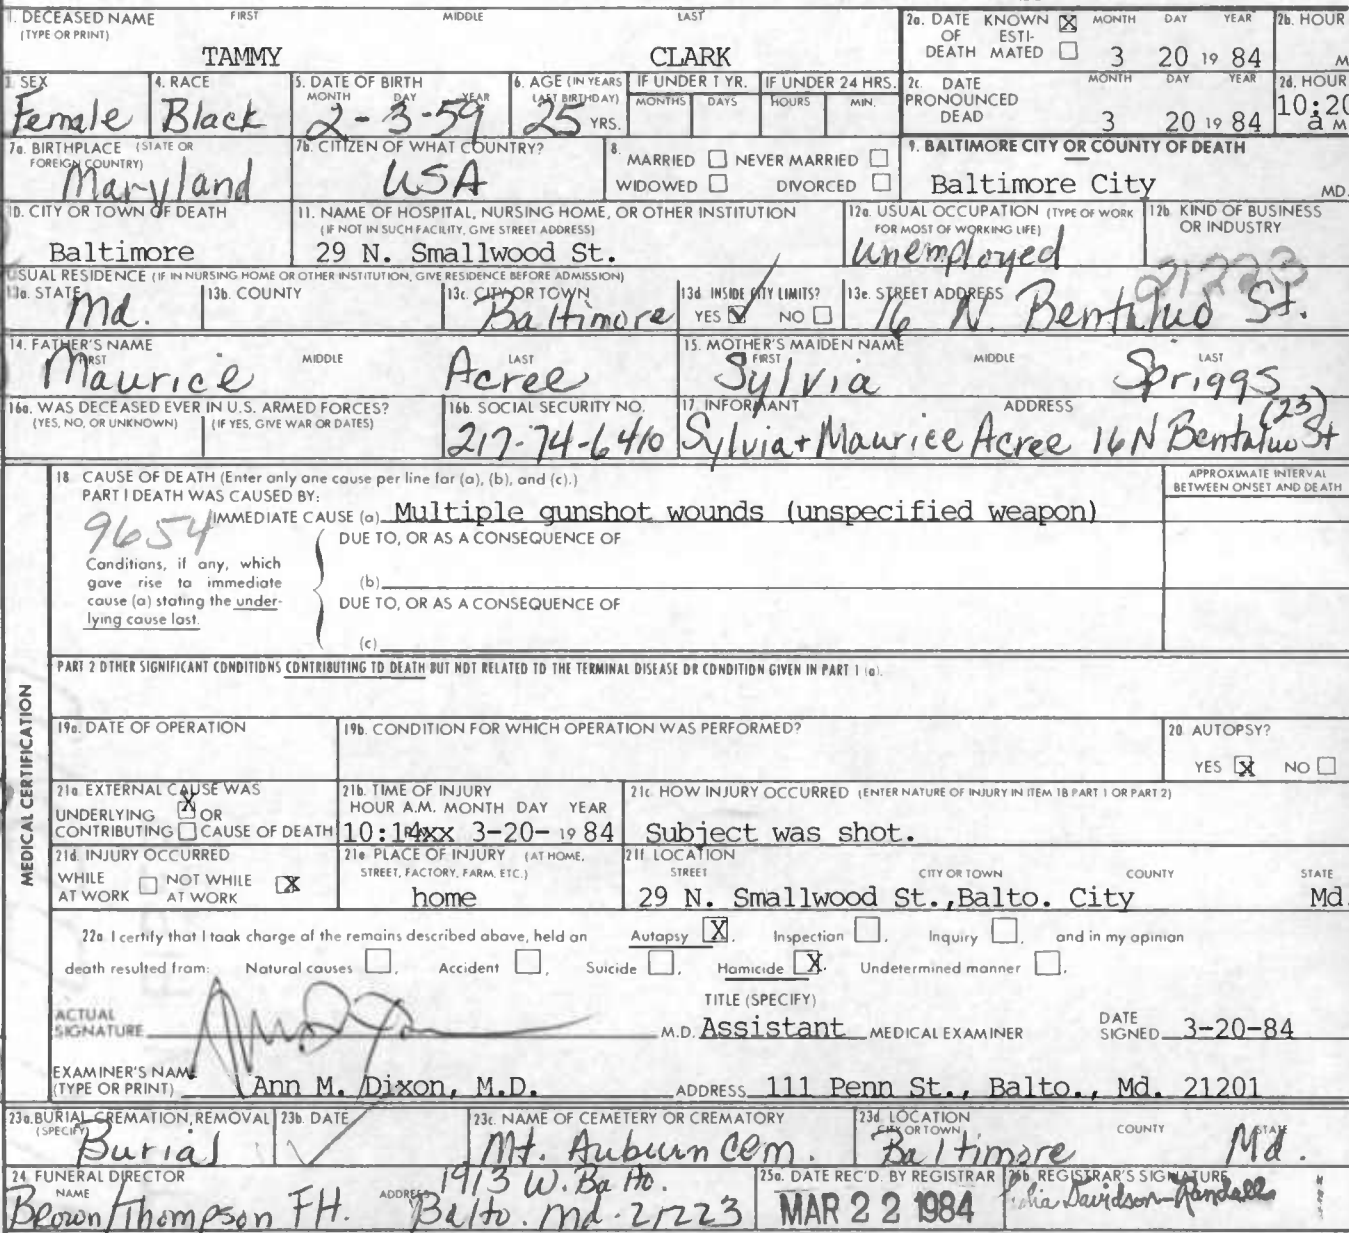 1. DECEASED NAME FIRST MIDDLE LAST
(TYPE OR PRINT)
TAMMY CLARK
2a. DATE KNOWN X MONTH DAY YEAR
OF ESTI-
DEATH MATED 3 20 19 84
2b. HOUR
M
3. SEX
Female
4. RACE
Black
5. DATE OF BIRTH
MONTH DAY YEAR
2-3-59
6. AGE (IN YEARS
LAST BIRTHDAY)
25 YRS.
IF UNDER 1 YR.
MONTHS DAYS
IF UNDER 24 HRS.
HOURS MIN.
2c. DATE MONTH DAY YEAR
PRONOUNCED
DEAD 3 20 19 84
2d. HOUR
10:20
a M
7a. BIRTHPLACE (STATE OR
FOREIGN COUNTRY)
Maryland
7b. CITIZEN OF WHAT COUNTRY?
USA
8.
MARRIED NEVER MARRIED
WIDOWED DIVORCED
9. BALTIMORE CITY OR COUNTY OF DEATH
Baltimore City MD.
10. CITY OR TOWN OF DEATH
Baltimore
11. NAME OF HOSPITAL, NURSING HOME, OR OTHER INSTITUTION
(IF NOT IN SUCH FACILITY, GIVE STREET ADDRESS)
29 N. Smallwood St.
12a. USUAL OCCUPATION (TYPE OF WORK
FOR MOST OF WORKING LIFE)
Unemployed
12b. KIND OF BUSINESS
OR INDUSTRY
USUAL RESIDENCE (IF IN NURSING HOME OR OTHER INSTITUTION, GIVE RESIDENCE BEFORE ADMISSION)
21223
13a. STATE
Md.
13b. COUNTY
13c. CITY OR TOWN
Baltimore
13d. INSIDE CITY LIMITS?
YES X NO
13e. STREET ADDRESS
16 N. Bentaluo St.
14. FATHER'S NAME
FIRST MIDDLE LAST
Maurice Acree
15. MOTHER'S MAIDEN NAME
FIRST MIDDLE LAST
Sylvia Spriggs
16a. WAS DECEASED EVER IN U.S. ARMED FORCES?
(YES, NO, OR UNKNOWN) (IF YES, GIVE WAR OR DATES)
16b. SOCIAL SECURITY NO.
217-74-6410
17. INFORMANT ADDRESS
(23)
Sylvia + Maurice Acree 16 N Bentaluo St
MEDICAL CERTIFICATION
18 CAUSE OF DEATH (Enter only one cause per line for (a), (b), and (c).)
APPROXIMATE INTERVAL
BETWEEN ONSET AND DEATH
PART I DEATH WAS CAUSED BY:
9654
IMMEDIATE CAUSE (a) Multiple gunshot wounds (unspecified weapon)
DUE TO, OR AS A CONSEQUENCE OF
Conditions, if any, which
gave rise to immediate
cause (a) stating the under-
lying cause last.
(b)
DUE TO, OR AS A CONSEQUENCE OF
(c)
PART 2 OTHER SIGNIFICANT CONDITIONS CONTRIBUTING TO DEATH BUT NOT RELATED TO THE TERMINAL DISEASE OR CONDITION GIVEN IN PART 1 (a).
19a. DATE OF OPERATION
19b. CONDITION FOR WHICH OPERATION WAS PERFORMED?
20 AUTOPSY?
YES X NO
21a EXTERNAL CAUSE WAS
UNDERLYING X OR
CONTRIBUTING CAUSE OF DEATH
21b. TIME OF INJURY
HOUR A.M. MONTH DAY YEAR
10:14xx 3-20- 19 84
21c. HOW INJURY OCCURRED (ENTER NATURE OF INJURY IN ITEM 18 PART 1 OR PART 2)
Subject was shot.
21d. INJURY OCCURRED
WHILE NOT WHILE X
AT WORK AT WORK
21e PLACE OF INJURY (AT HOME,
STREET, FACTORY, FARM, ETC.)
home
21f. LOCATION
STREET CITY OR TOWN COUNTY STATE
29 N. Smallwood St.,Balto. City Md.
22a I certify that I took charge of the remains described above, held an Autopsy X, Inspection , Inquiry , and in my opinion
death resulted from: Natural causes , Accident , Suicide , Homicide X. Undetermined manner .
ACTUAL
SIGNATURE
TITLE (SPECIFY)
M.D. Assistant MEDICAL EXAMINER
DATE
SIGNED 3-20-84
EXAMINER'S NAME
(TYPE OR PRINT) Ann M. Dixon, M.D. ADDRESS 111 Penn St., Balto., Md. 21201
23a. BURIAL, CREMATION, REMOVAL
(SPECIFY)
Burial
23b. DATE
23c. NAME OF CEMETERY OR CREMATORY
Mt. Auburn Cem.
23d. LOCATION
CITY OR TOWN COUNTY STATE
Baltimore Md.
24. FUNERAL DIRECTOR
NAME ADDRESS
Brown/Thompson FH. 1913 W. Balto.
Balto. Md. 21223
25a. DATE REC'D. BY REGISTRAR
MAR 22 1984
25b. REGISTRAR'S SIGNATURE
Davidson-Randall